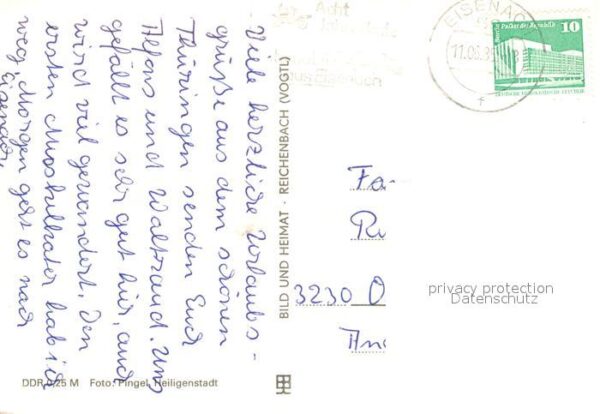 Viele herzliche Urlaubs-
grüße aus dem schönen
Thüringen senden Euch
Alfons und Waltraud. Uns
gefällt es sehr gut hier, auch
wird viel gewandert. Den
ersten Muskelkater hab ich
weg, Morgen geht es nach
Eisenach.
BILD UND HEIMAT · REICHENBACH (VOGTL)
DDR 0,25 M Foto: Pingel, Heiligenstadt
Acht
EISENACH
11.08.8
Berlin Palast der Republik
10
DEUTSCHE DEMOKRATISCHE REPUBLIK
Fa
3230 O
privacy protection
Datenschutz